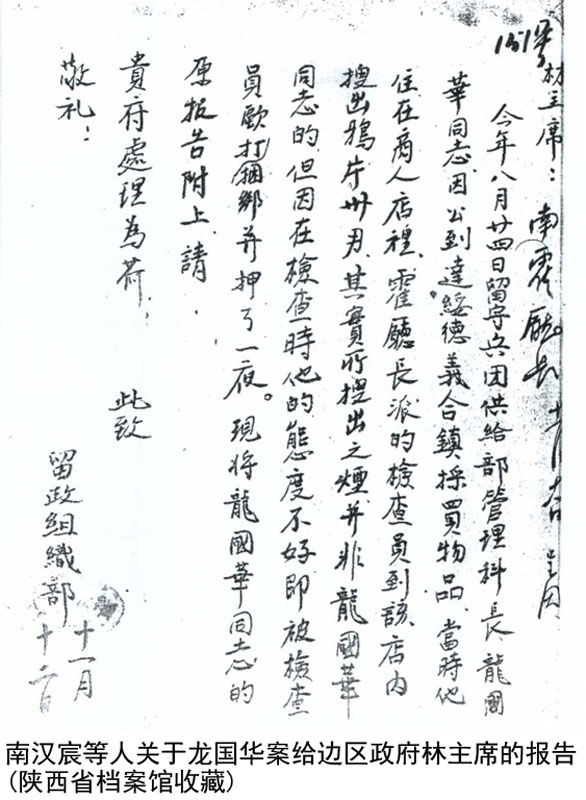 林主席：
今年八月廿四日留守兵团供給部管理科長龍國
華同志因公到達綏德義合鎮採買物品、當時他
住在商人店裡、霍廳長派的檢查員到該店内
搜出鴉片卅两、其實所搜出之煙并非龍國華
同志的但因在檢查時他的態度不好即被檢查
員歐打捆綁并押了一夜。現將龍國華同志的
原报告附上、請
貴府處理為荷、
此致
敬礼：
留政組織部
十一月
十二日
南汉宸等人关于龙国华案给边区政府林主席的报告
(陕西省档案馆收藏)